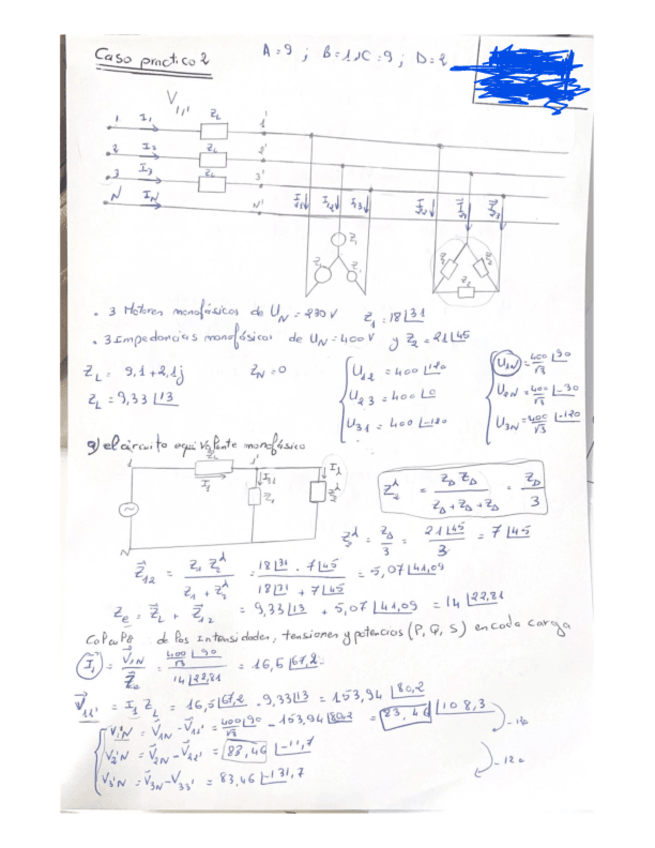 Caso practico 2
A=9 ; B=1 ; C=9 ; D=2
V11'
1 I1 ZL 1'
2 I2 ZL 2'
3 I3 ZL 3'
N IN N'
Z1
Z2
. 3 Motores monofásicos de UN = 230 V Z1 = 18∠31
. 3 Impedancias monofásicas de UN = 400 V y Z2 = 21∠45
ZL = 9,1 + 2,1j ZN = 0
ZL = 9,33 ∠13
U12 = 400 ∠120
U23 = 400 ∠0
U31 = 400 ∠-120
U1N = 400/√3 ∠90
U2N = 400/√3 ∠-30
U3N = 400/√3 ∠-120
a) el circuito equivalente monofásico
1 ZL 1'
I1
Z1
N
Z⅄ = ZΔ ZΔ / (ZΔ + ZΔ + ZΔ) = ZΔ/3
Z2⅄ = ZΔ/3 = 21∠45/3 = 7∠45
Z12 = Z1 Z2⅄ / (Z1 + Z2⅄) = 18∠31 . 7∠45 / (18∠31 + 7∠45) = 5,07 ∠41,09
Ze = ZL + Z12 = 9,33∠13 + 5,07∠41,09 = 14∠22,81
de las Intensidades, tensiones y potencias (P, Q, S) en cada carga
I1 = V1N/Ze = 400/√3 ∠90 / 14∠22,81 = 16,5 ∠67,2
V11' = I1 ZL = 16,5∠67,2 . 9,33∠13 = 153,94 ∠80,2
V1'N = V1N - V11' = 400∠90/√3 - 153,94∠80,2 = 83,46 ∠108,3
V2'N = V2N - V22' = 83,46 ∠-11,7
V3'N = V3N - V33' = 83,46 ∠-131,7
-120
-120